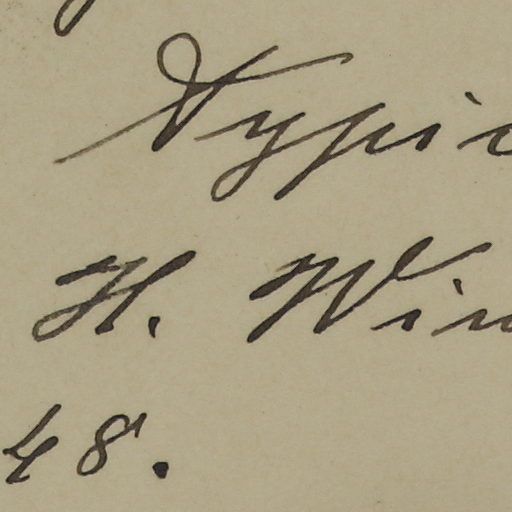 Typic
H. Win
48.